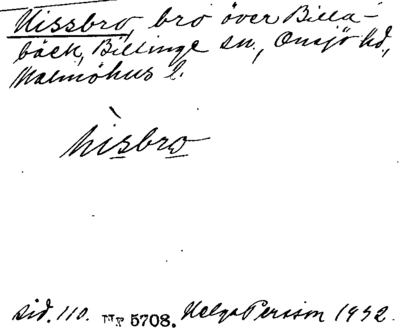 Nissbro, bro över Billa-
bäck, Billinge sn., Onsjö hd.,
Malmöhus l.
nìsbro
sid. 110. Nr 5708. Helga Persson 1932.